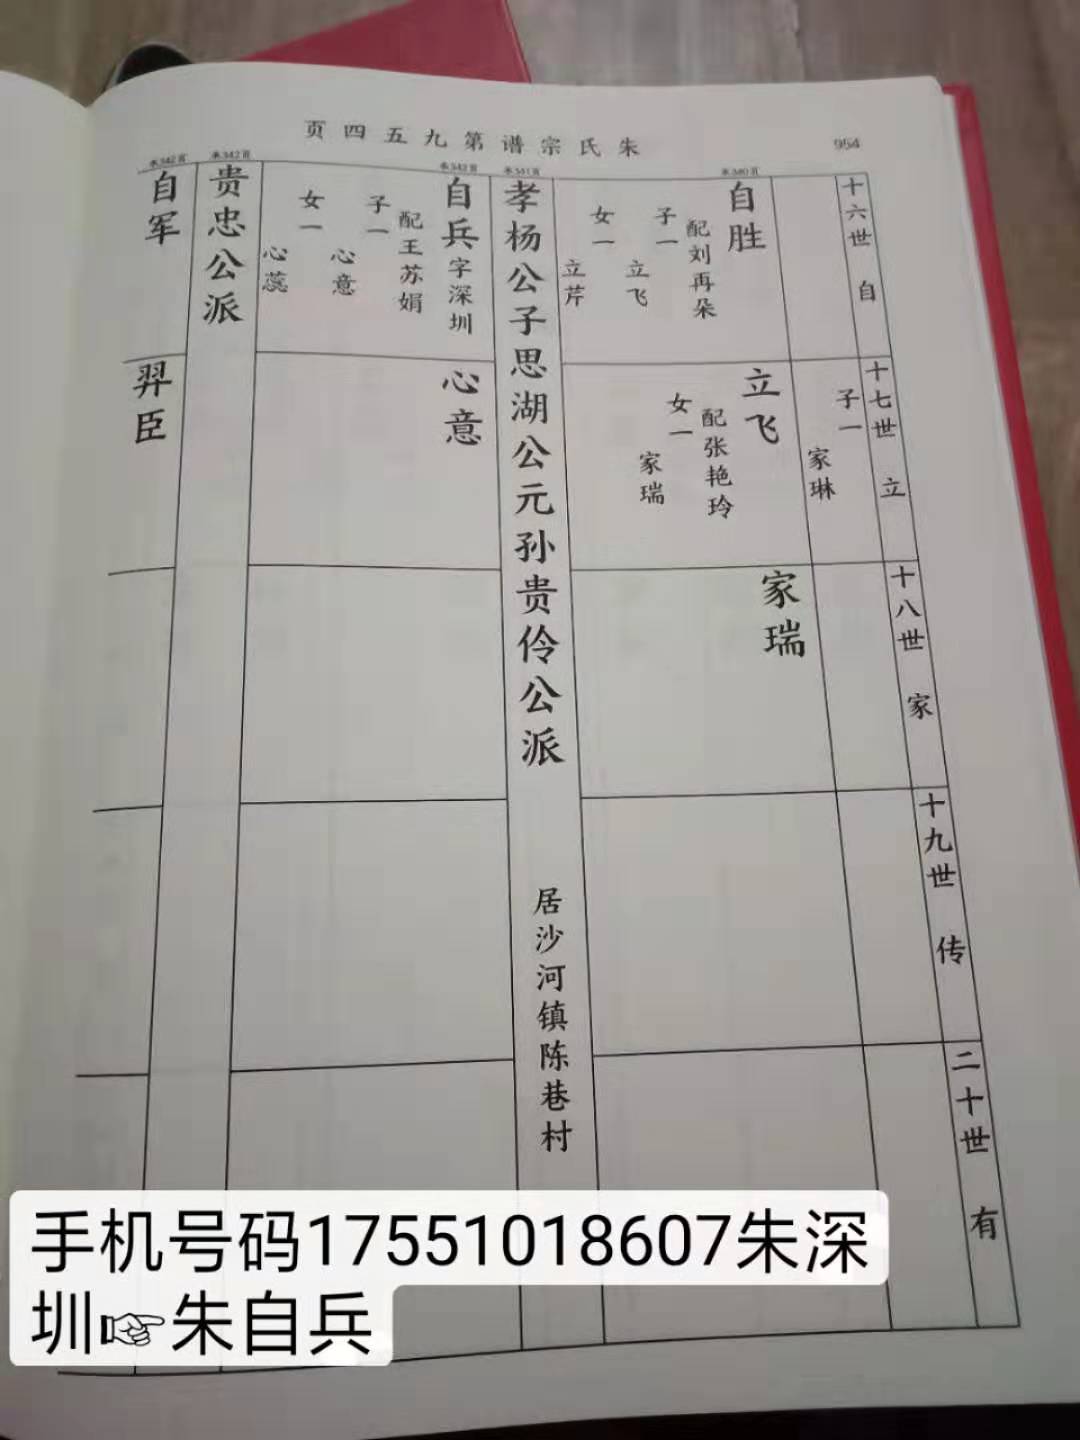 朱氏宗谱第九五四页
954
十六世 自
十七世 立
十八世 家
十九世 传
二十世 有
子一
家琳
承340页
自胜
配刘再朵
子一
立飞
女一
立芹
立飞
配张艳玲
女一
家瑞
家瑞
承341页
孝杨公子思湖公元孙贵伶公派
居沙河镇陈巷村
承342页
自兵字深圳
配王苏娟
子一
心意
女一
心蕊
心意
承342页
贵忠公派
承342页
自军
羿臣
手机号码17551018607朱深
圳☞朱自兵